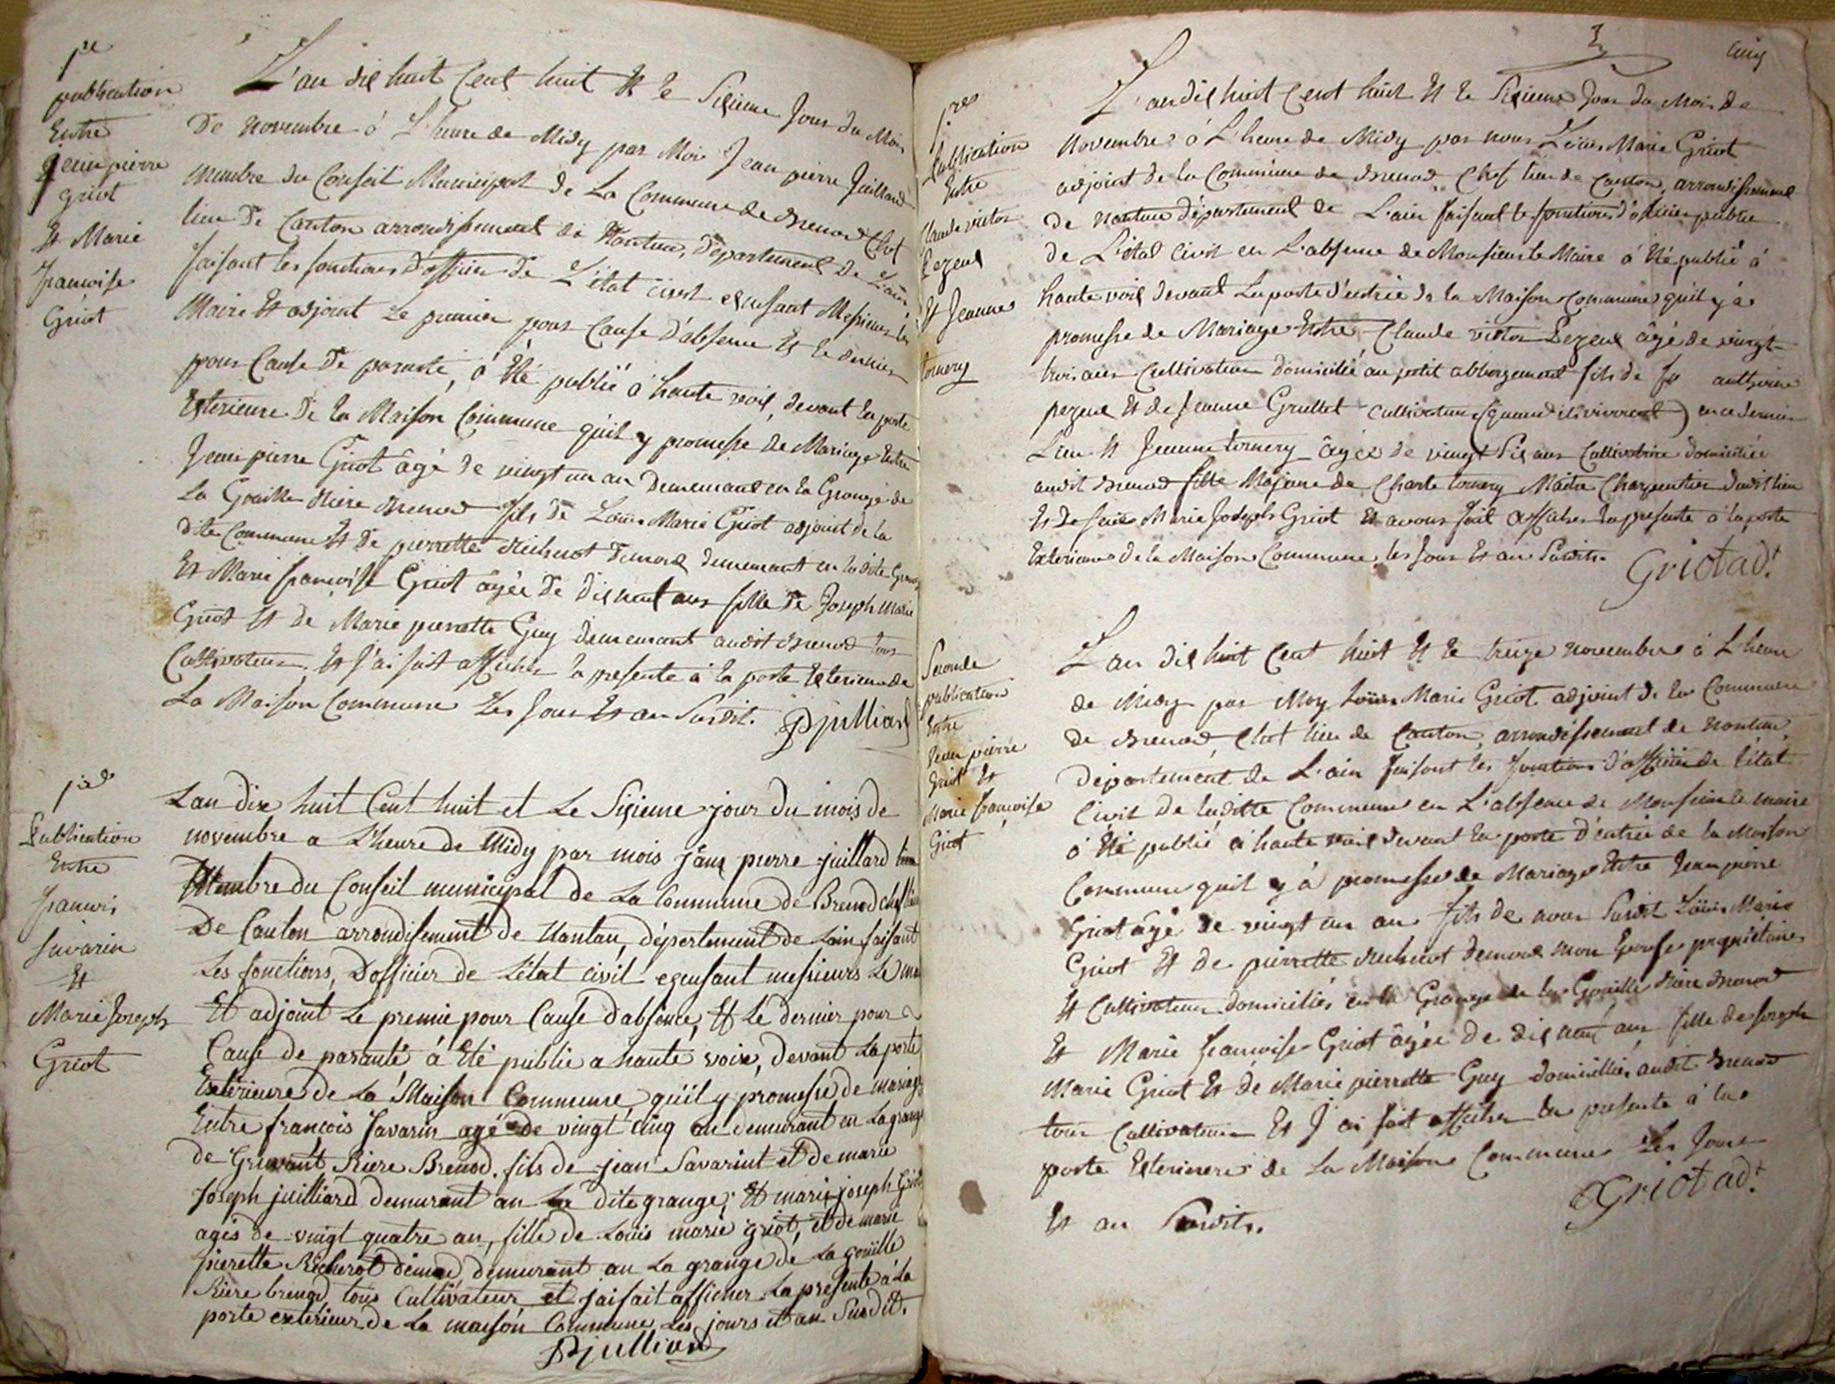 1re
publication
Entre
Jean pierre
Griot
Et Marie
francoise
Griot
L'an dix huit Cent huit Et le Sixieme Jour du Mois
De novembre á L'heure de Midy par Moi Jean pierre Juillard
membre du Conseil Municipal de La Commune de Brenod Chef
lieu De Canton arrondissement de Nantua, Departement de L'ain
faisant les fonctions d'officier De L'état civil excusant Messieurs les
Maire Et adjoint Le premier pour Cause d'absence Et le dernier
pour Cause De parenté, á Eté publié á haute voix, devant la porte
Exterieure De la Maison Commune qu'il y promesse de Mariage Entre
Jean pierre Griot âgé de vingt un an Demeurant en la Grange de
La Gouille Riere Brenod fils De Loüis Marie Griot adjoint de la
dite Commune Et De pierrette Richerot Demored demeurant en la dite Grange
Et Marie francoise Griot âgée De dix neuf ans fille De Joseph Marie
Griot Et De Marie pierrette Guy demeurant audit Brenod tous
Cultivateurs, Et J'ai fait afficher la presente á la porte Exterieure de
La Maison Commune Les Jour Et an Susdit.
JPjulliard
1re
Publication
Entre
francois
Savarin
Et
Marie Joseph
Griot
Lan dix huit Cent huit et Le Sixieme jour du mois de
novembre a L'heure de Midy par mois jean pierre juillard
Membre du Conseil municipal de La Commune de Brenod chef lieu
De Canton arrondisement de Nantau, département de Lain faisant
Les fonctions, D'officier de L'état civil excusant messieurs Le maire
Et adjoint Le premie pour Cause d'absence, Et Le dernier pour
Cause de paranté á Eté publie a haute voix, devant La porte
Extérieure de La Maison Commune qu'il y promesse de mariage
Entre françois Savarin agé de vingt cinq an demurant en La grange
de Rière Brenod, fils de jean Savarint et de marie
Joseph juilliard demurant an La dite grange; Et marie joseph Griot
agés de vingt quatre an, fille de Loüis marie griot, et de marie
pierette Richerot demurant an La grange de La gouille
Riere brenod, tous Cultivateur et jaifait afficher La présente á La
porte exterieur de La maison Commune Les jours et an Susdit.
JPjulliard
3
Cinq
1res
Publication
Entre
Claude victor
Pezeul
Et Jeanne
tornery
L'an dix huit Cent huit Et le Sixieme Jour du Mois de
Novembre á L'heure de Midy par nous Loüis Marie Griot
adjoint de la Commune de Brenod, Chef lieu de Canton, arrondissement
de Nantua département de L'ain faisant les fonctions d'officier public
de L'état Civil en L'absence de Monsieur le Maire á Eté publié á
haute voix devant La porte d'entrée de la Maison Commune qu'il y á
promesse de Mariage Entre Claude victor Pezeul âgé de vingt
trois ans Cultivateur domicilié au petit abbergement fils de fu anthoine
pezeul Et de Jeanne Grullet cultivateurs (quand ils vivroient) en ce dernier
Lieu Et Jeanne tornery âgée de vingt Six ans Cultivatrice domiciliée
audit Brenod fille Majeure de Charle tornery Maitre Charpentier dudit lieu
Et De feue Marie Joseph Griot Et avons fait afficher la presente á la porte
Exterieure de la Maison Commune, les Jour Et an Susdits.
Griot adt.
Seconde
publication
Entre
Jean pierre
Griot Et
Marie françoise
Griot
L'an dix huit Cent huit Et le treize novembre á L'heure
de Midy par Moy Loüis Marie Griot adjoint de la Commune
de Brenod, Chef lieu de Canton, arrondissement de Nantua,
département de L'ain faisant les fonctions d'officier de l'état
Civil de laditte Commune en L'absence de Monsieur le maire
á Eté publié á haute voix devant la porte d'entrée de la Maison
Commune qu'il y á promesse de Mariage Entre Jean pierre
Griot âgé de vingt un an fils de nous Susdit Loüis Marie
Griot Et de pierrette Richerot demored mon Epouse propriétaires
Et Cultivateurs domiciliés en la Grange de la Gouille Riere Brenod
Et Marie francoise Griot âgée de dix neuf ans fille de Joseph
Marie Griot Et de Marie pierrette Guy domicilliés audit Brenod
tous Cultivateurs Et J'ai fait afficher la presente á la
porte Exterieure de La Maison Commune Les Jours
Et an Susdits.
Griot adt.